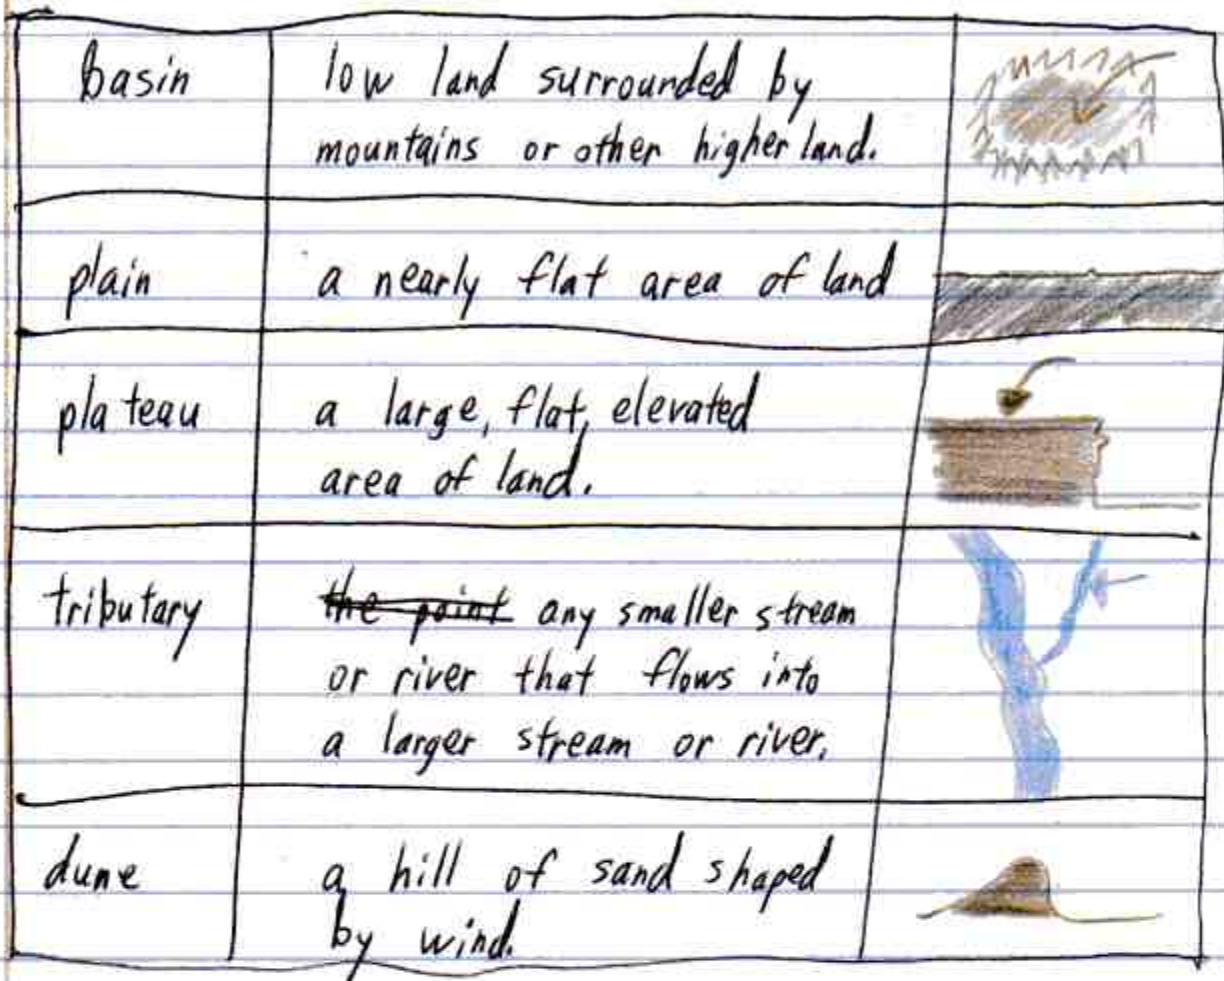 basin
low land surrounded by
mountains or other higher land.
plain
a nearly flat area of land
plateau
a large, flat, elevated
area of land.
tributary
the point any smaller stream
or river that flows into
a larger stream or river.
dune
a hill of sand shaped
by wind.